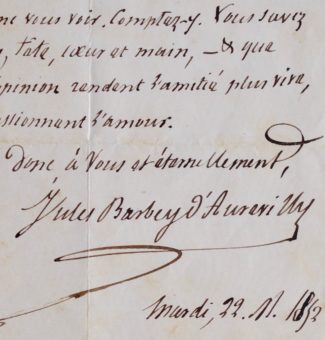 ne vous voir. Comptez-y. Vous savez
, tate, cœur et main, — & que
opinion rendent l'amitié plus vive,
ssionnent l'amour.
Donc à Vous et éternellement,
Jules Barbey d'Aurevilly
Mardi, 22.